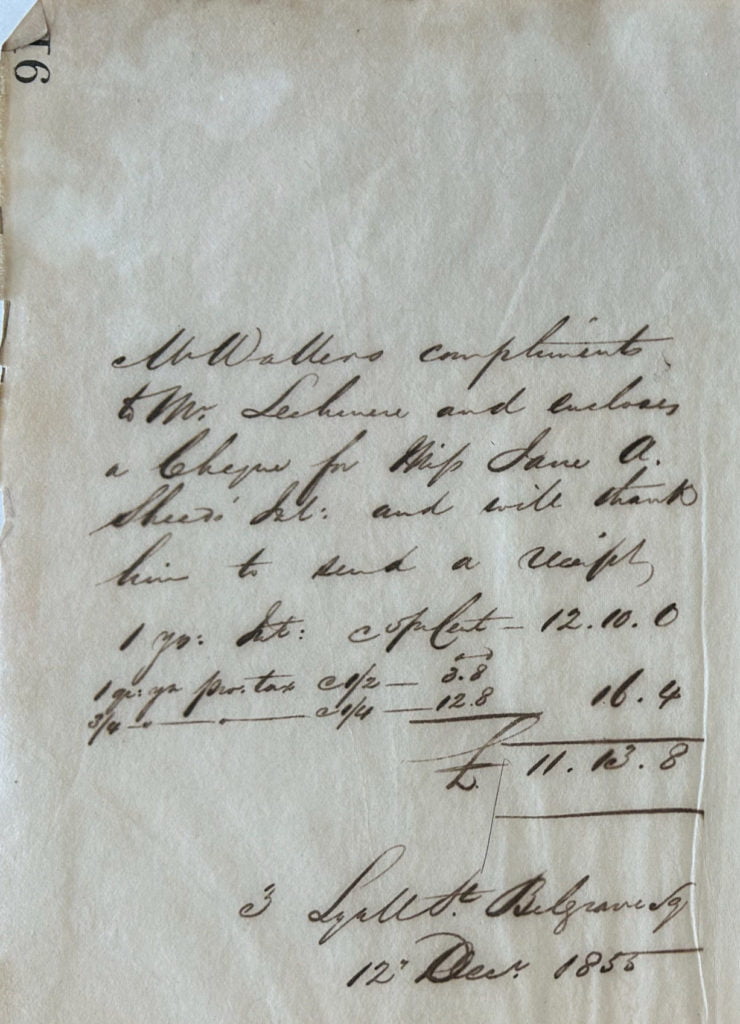 91
Mr Walters compliments
to Mr. Lechmere and encloses
a Cheque for Miss Jane A.
Int: and will thank
him to send a receipt
1 yr: Int: Cent – 12.10.0
1 qr: yr pro: tax @ 1/2 — 3.8
3/4 " — " — @ 1/4 — 12.8 16.4
£ 11.13.8
3 Lyall St. Belgrave Sq
12" Decr. 1855